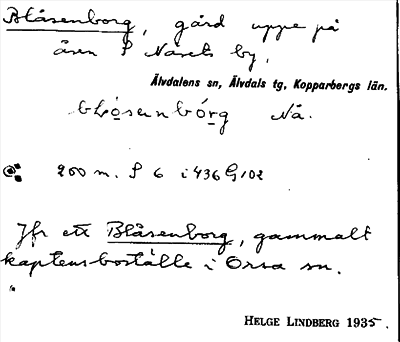 Blåsenborg, gård uppe på
åsen S Nåsets by,
Älvdalens sn, Älvdals tg, Kopparbergs län.
Nå.
200 m. S 6 i 436 G 102
Jfr ett Blåsenborg, gammalt
kaptensboställe i Orsa sn.
HELGE LINDBERG 1935.